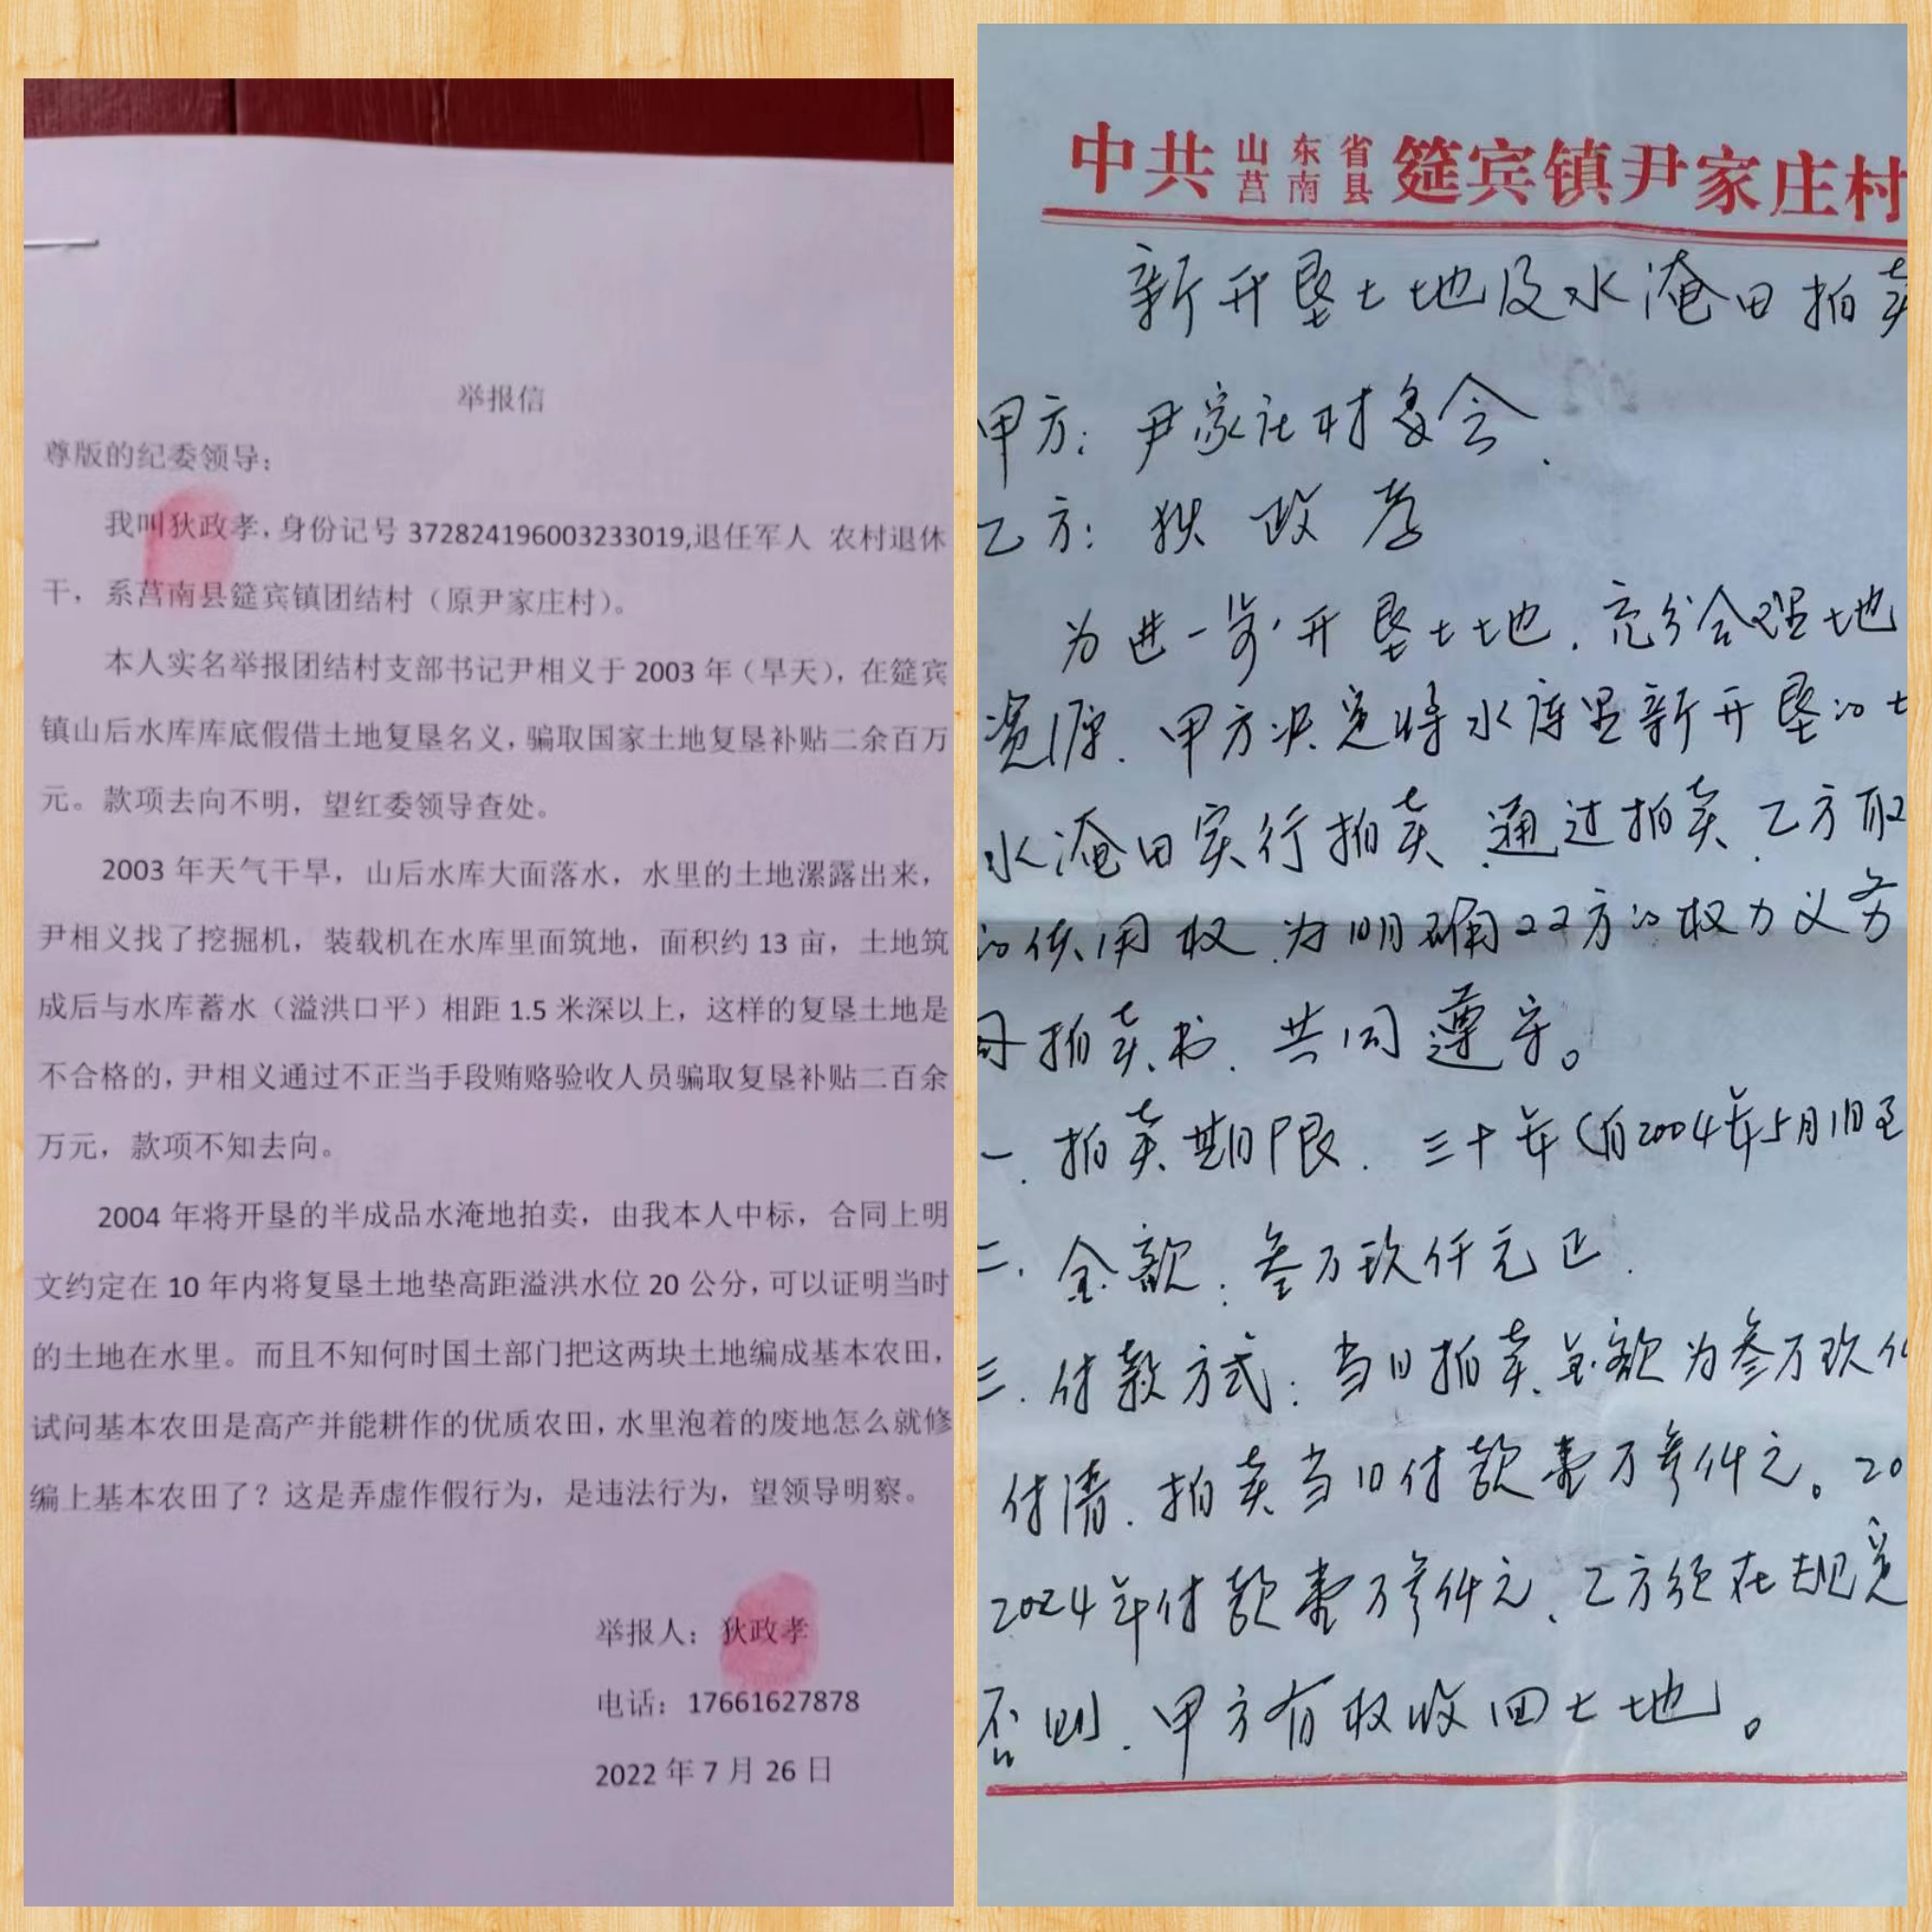 举报信
尊版的纪委领导：
我叫狄政孝，身份记号 372824196003233019,退任军人 农村退休
干，系莒南县筵宾镇团结村（原尹家庄村）。
本人实名举报团结村支部书记尹相义于 2003 年（旱天），在筵宾
镇山后水库库底假借土地复垦名义，骗取国家土地复垦补贴二余百万
元。款项去向不明，望红委领导查处。
2003 年天气干旱，山后水库大面落水，水里的土地漯露出来，
尹相义找了挖掘机，装载机在水库里面筑地，面积约 13 亩，土地筑
成后与水库蓄水（溢洪口平）相距 1.5 米深以上，这样的复垦土地是
不合格的，尹相义通过不正当手段贿赂验收人员骗取复垦补贴二百余
万元，款项不知去向。
2004 年将开垦的半成品水淹地拍卖，由我本人中标，合同上明
文约定在 10 年内将复垦土地垫高距溢洪水位 20 公分，可以证明当时
的土地在水里。而且不知何时国土部门把这两块土地编成基本农田，
试问基本农田是高产并能耕作的优质农田，水里泡着的废地怎么就修
编上基本农田了？这是弄虚作假行为，是违法行为，望领导明察。
举报人：狄政孝
电话：17661627878
2022 年 7 月 26 日
中共山东省莒南县筵宾镇尹家庄村
新开垦土地及水淹田拍卖
甲方：尹家庄村委会
乙方：狄政孝
为进一步开垦土地，充分合理土地
资源，甲方决定将水库里新开垦的土
水淹田实行拍卖，通过拍卖，乙方取
的使用权，为明确双方的权力义务
拍卖书，共同遵守。
一、拍卖期限：三十年（自2004年5月1日至
二、金额：叁万玖仟元正.
三、付款方式：当日拍卖总额为叁万玖仟
付清，拍卖当日付款壹万叁仟元。20
2024年付款壹万叁仟元，乙方须在规定
否则，甲方有权收回土地。